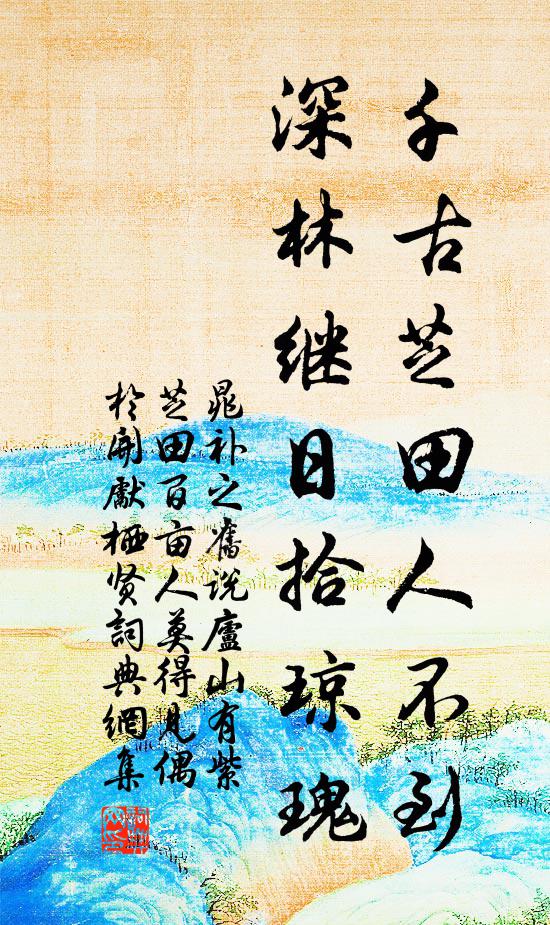 千古芝田人不到
深林继日拾琼瑰
晁补之舊说廬山有紫
芝田百亩人莫得见偶
於開獻栖贤詞典網集